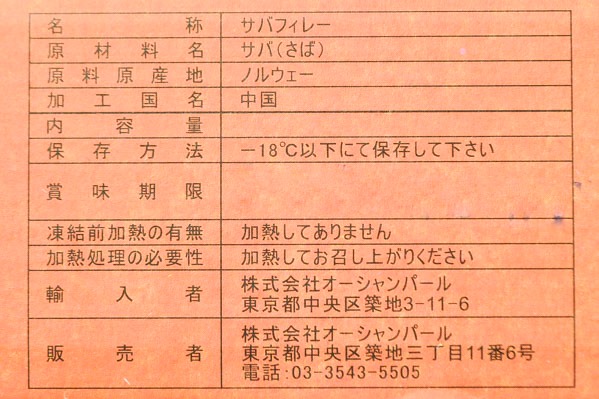 名称 サバフィレー
原材料名 サバ(さば)
原料原産地 ノルウェー
加工国名 中国
内容量
保存方法 －18℃以下にて保存して下さい
賞味期限
凍結前加熱の有無 加熱してありません
加熱処理の必要性 加熱してお召し上がりください
輸入者 株式会社オーシャンパール
東京都中央区築地3-11-6
販売者 株式会社オーシャンパール
東京都中央区築地三丁目11番6号
電話:03-3543-5505